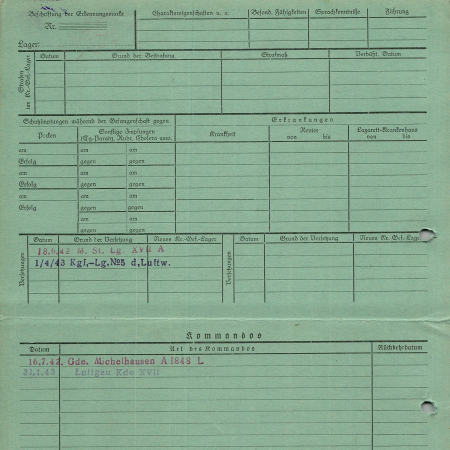 Beschriftung der Erkennungsmarke
Nr.
Lager:
Charaktereigenschaften u. a.
Besond. Fähigkeiten
Sprachkenntnisse
Führung
Strafen im Kr.-Gef.-Lager
Datum
Grund der Bestrafung
Strafmaß
Verbüßt, Datum
Schutzimpfungen während der Gefangenschaft gegen
Erkrankungen
Pocken
Sonstige Impfungen
(Ty.-Paraty, Ruhr, Cholera usw.)
Krankheit
Revier
von bis
Lazarett-Krankenhaus
von bis
am am am
Erfolg gegen gegen
am am am
Erfolg gegen gegen
am am am
Erfolg gegen gegen
am am
gegen gegen
Versetzungen
Datum Grund der Versetzung Neues Kr.-Gef.-Lager
Versetzungen
Datum Grund der Versetzung Neues Kr.-Gef.-Lager
18.6.42 M. St. Lg. XVII A
1/4/43 Kgf.-Lg.№5 d,Luftw.
Kommandos
Datum Art des Kommandos Rückkehrdatum
16.7.42. Gde. Michelhausen A 1848 L
31.1.43 Luftgau Kdo XVII